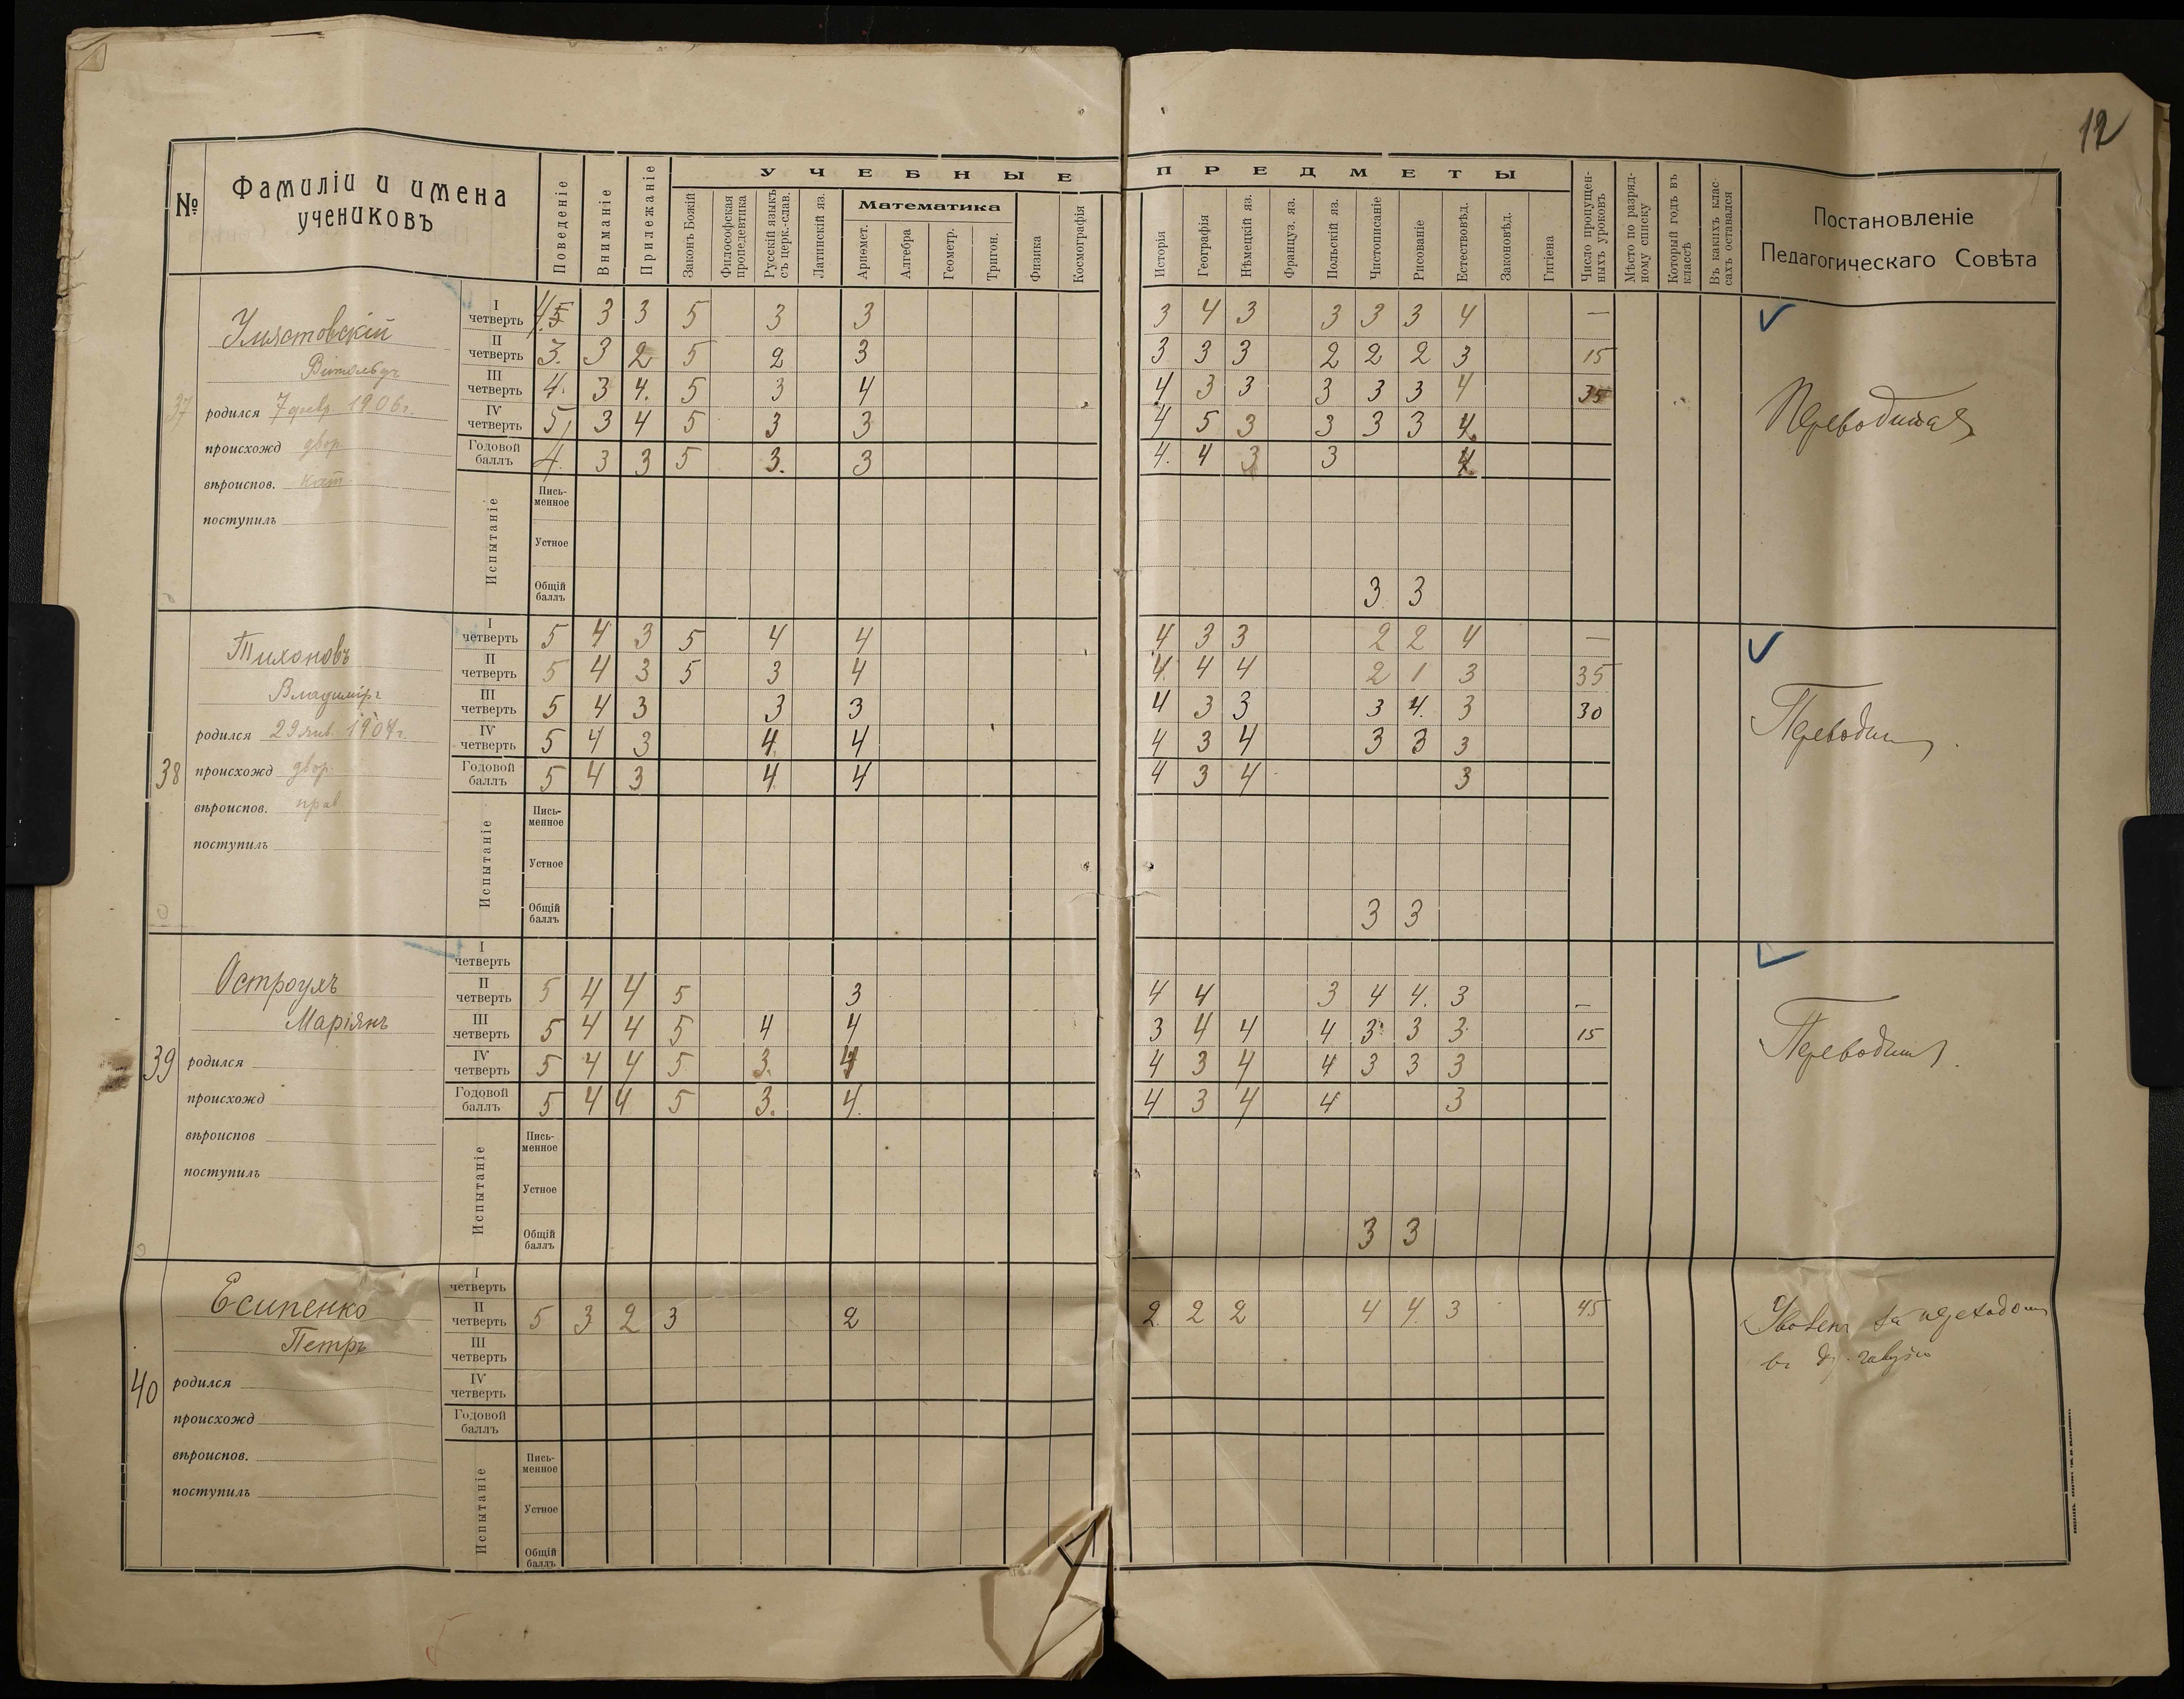 12
№
Фамиліи и имена
учениковъ
Поведеніе
Вниманіе
Прилежаніе
УЧЕБНЫЕ ПРЕДМЕТЫ
Законъ Божій
Философская
пропедевтика
Русскій языкъ
съ церк.-слав.
Латинскій яз.
Математика
Ариѳмет.
Алгебра
Геометр.
Тригон.
Физика
Космографія
Исторія
Географія
Нѣмецкій яз.
Француз. яз.
Польскій яз.
Чистописаніе
Рисованіе
Естествовѣд.
Законовѣд.
Гигіена
Число пропущен-
ныхъ уроковъ
Мѣсто по разряд-
ному списку
Который годъ въ
классѣ
Въ какихъ клас-
сахъ оставался
Постановленіе
Педагогическаго Совѣта
37
Умястовскій
Витольдъ
родился 7 февр. 1906 г.
происхожд двор.
вѣроиспов. кат.
поступилъ
I четверть 4 5 3 3 5 3 3 3 4 3 3 3 3 4 —
II четверть 3. 3 2 5 2 3 3 3 3 2 2 2 3 15
III четверть 4. 3 4. 5 3 4 4 3 3 3 3 3 4 35
IV четверть 5 3 4 5 3 3 4 5 3 3 3 3 4.
Годовой баллъ 4. 3 3 5 3. 3 4. 4 3 3 4.
Испытаніе
Пись-
менное
Устное
Общій баллъ 3 3
Переводится
38
Тихоновъ
Владиміръ
родился 29 янв. 1904 г.
происхожд двор.
вѣроиспов. прав.
поступилъ
I четверть 5 4 3 5 4 4 4 3 3 2 2 4 —
II четверть 5 4 3 5 3 4 4 4 4 2 1 3 35
III четверть 5 4 3 3 3 4 3 3 3 4. 3 30
IV четверть 5 4 3 4 4 4 3 4 3 3 3
Годовой баллъ 5 4 3 4 4 4 3 4 3
Испытаніе
Пись-
менное
Устное
Общій баллъ 3 3
39
Маріянъ
родился
происхожд
вѣроиспов
поступилъ
I четверть
II четверть 5 4 4 5 3 4 4 3 4 4. 3 —
III четверть 5 4 4 5 4 4 3 4 4 4 3 3 3 15
IV четверть 5 4 4 5 3. 4 4 3 4 4 3 3 3
Годовой баллъ 5 4 4 5 3. 4. 4 3 4 4 3
Испытаніе
Пись-
менное
Устное
Общій баллъ 3 3
40
Есипенко
Петръ
родился
происхожд
вѣроиспов.
поступилъ
I четверть
II четверть 5 3 2 3 2 2. 2 2 4 4. 3 45
III четверть
IV четверть
Годовой баллъ
Испытаніе
Пись-
менное
Устное
Общій баллъ